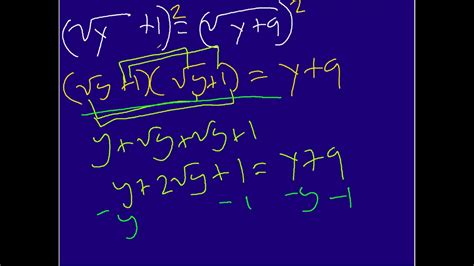 (√y + 1)² = (√y+9)²
(√y+1)(√y+1) = y+9
y+√y+√y+1
y+2√y+1 = y+9
-y -1 -y -1